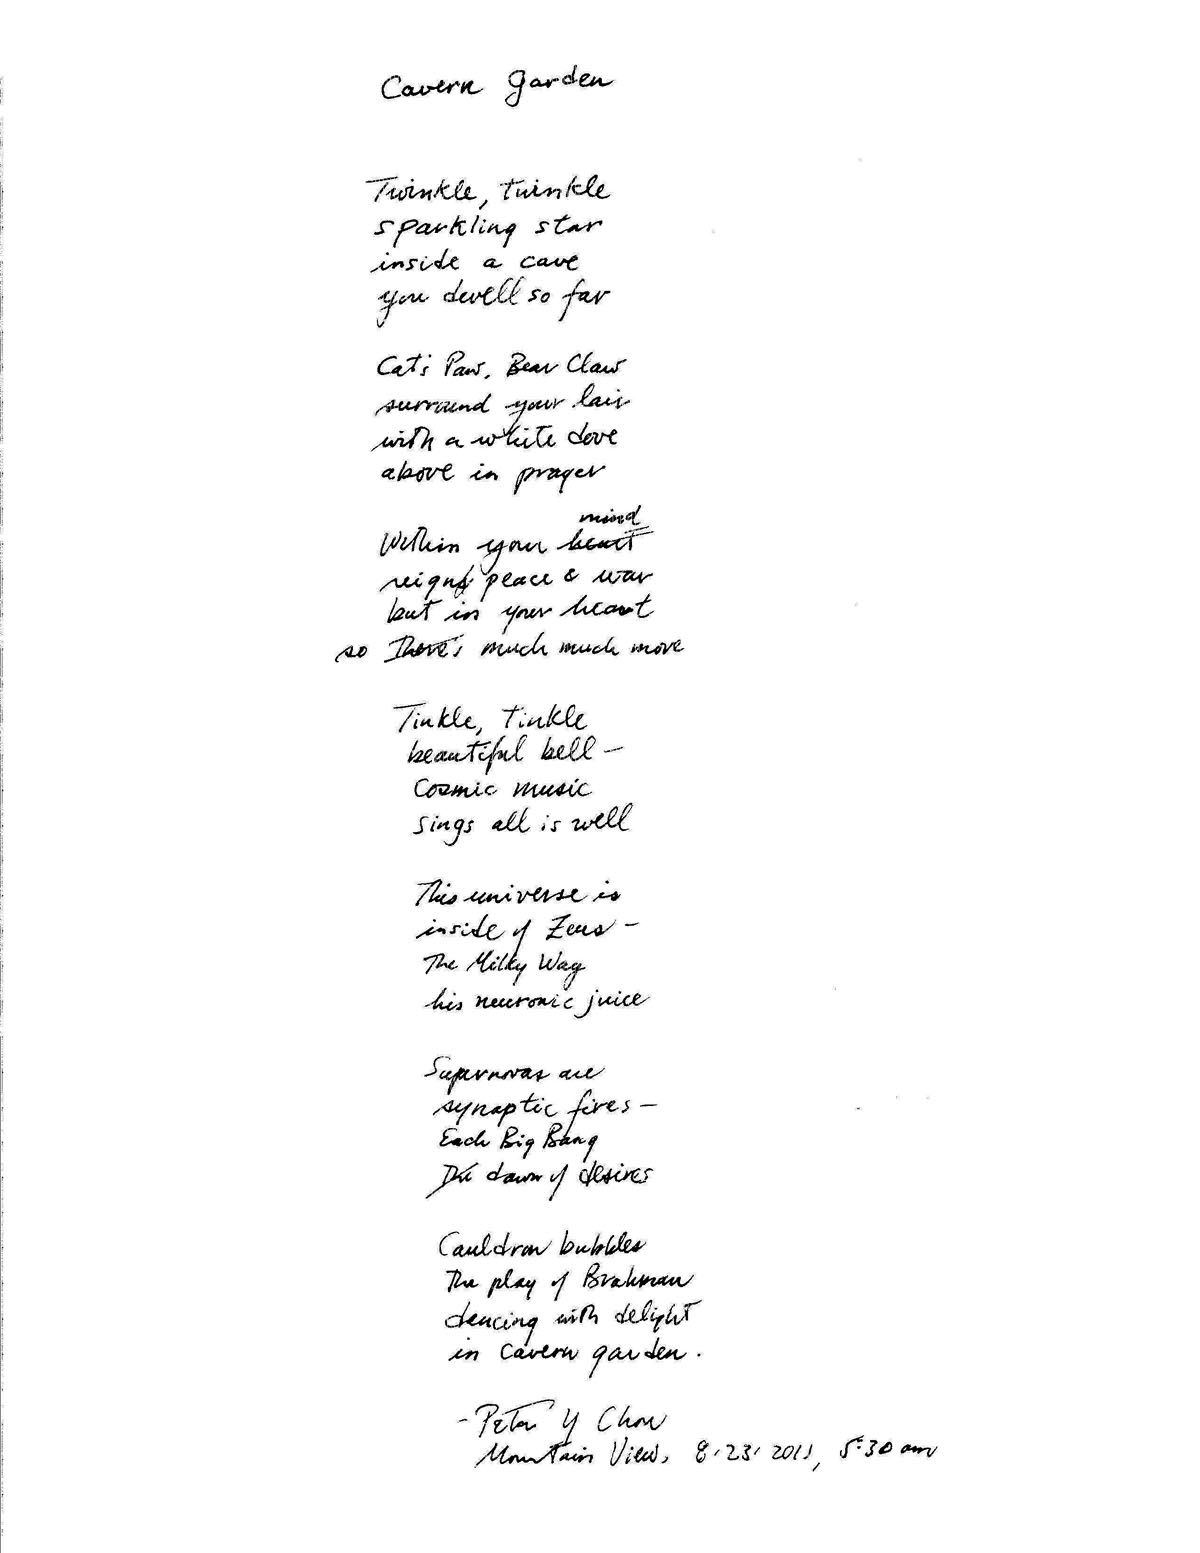 Cavern Garden
Twinkle, twinkle
sparkling star
inside a cave
you dwell so far
Cat's Paw, Bear Claw
surround your lair
with a white dove
above in prayer
mind
Within your heart
reigns peace & war
but in your heart
so There's much much more
Tinkle, tinkle
beautiful bell —
Cosmic music
sings all is well
This universe is
inside of Zeus —
The Milky Way
his neuronic juice
Supernovas are
synaptic fires —
Each Big Bang
The dawn of desires
Cauldron bubbles
The play of Brahman
dancing with delight
in Cavern garden.
- Peter Y Chou
Mountain View, 8·23·2011, 5:30 am